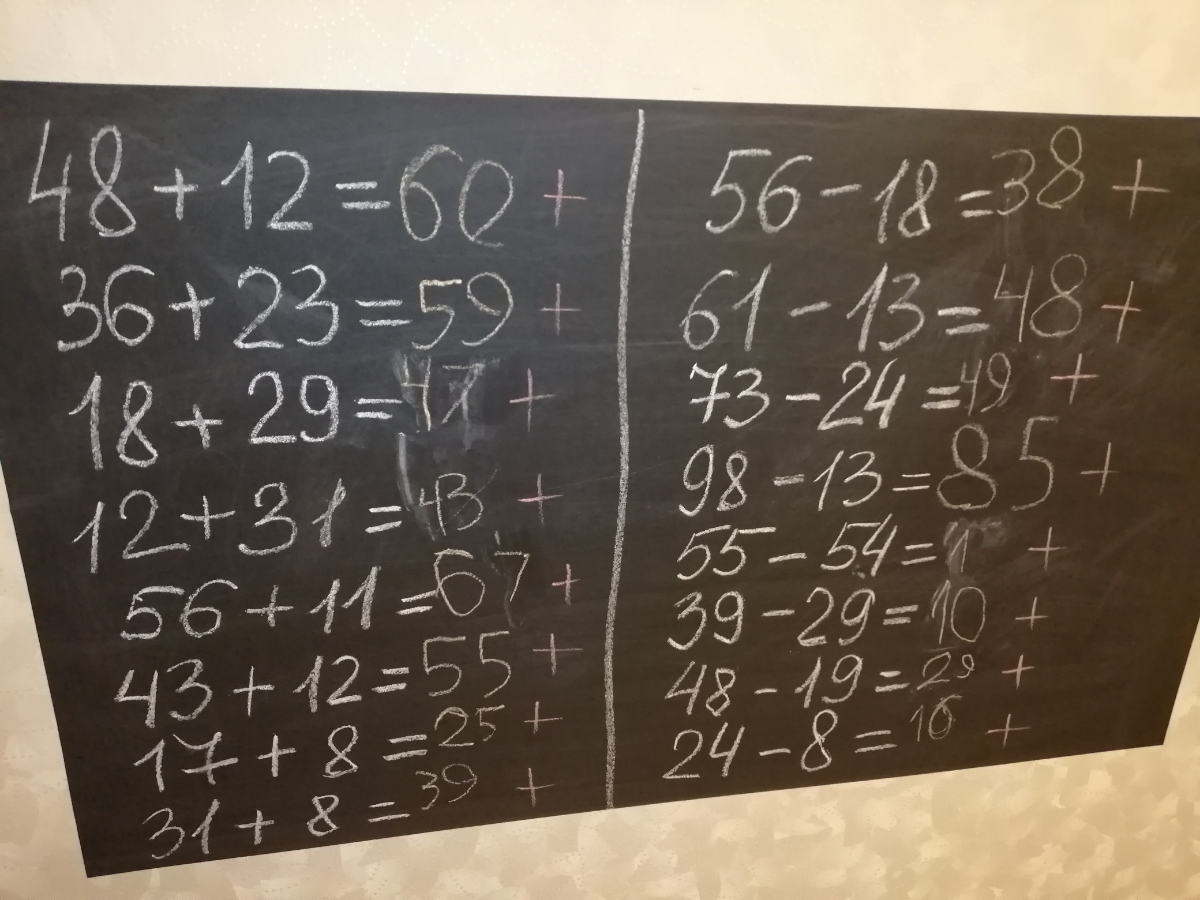 48 + 12 = 60 +
36 + 23 = 59 +
18 + 29 = 47 +
12 + 31 = 43 +
56 + 11 = 67 +
43 + 12 = 55 +
17 + 8 = 25 +
31 + 8 = 39 +
56 - 18 = 38 +
61 - 13 = 48 +
73 - 24 = 49 +
98 - 13 = 85 +
55 - 54 = 1 +
39 - 29 = 10 +
48 - 19 = 29 +
24 - 8 = 16 +